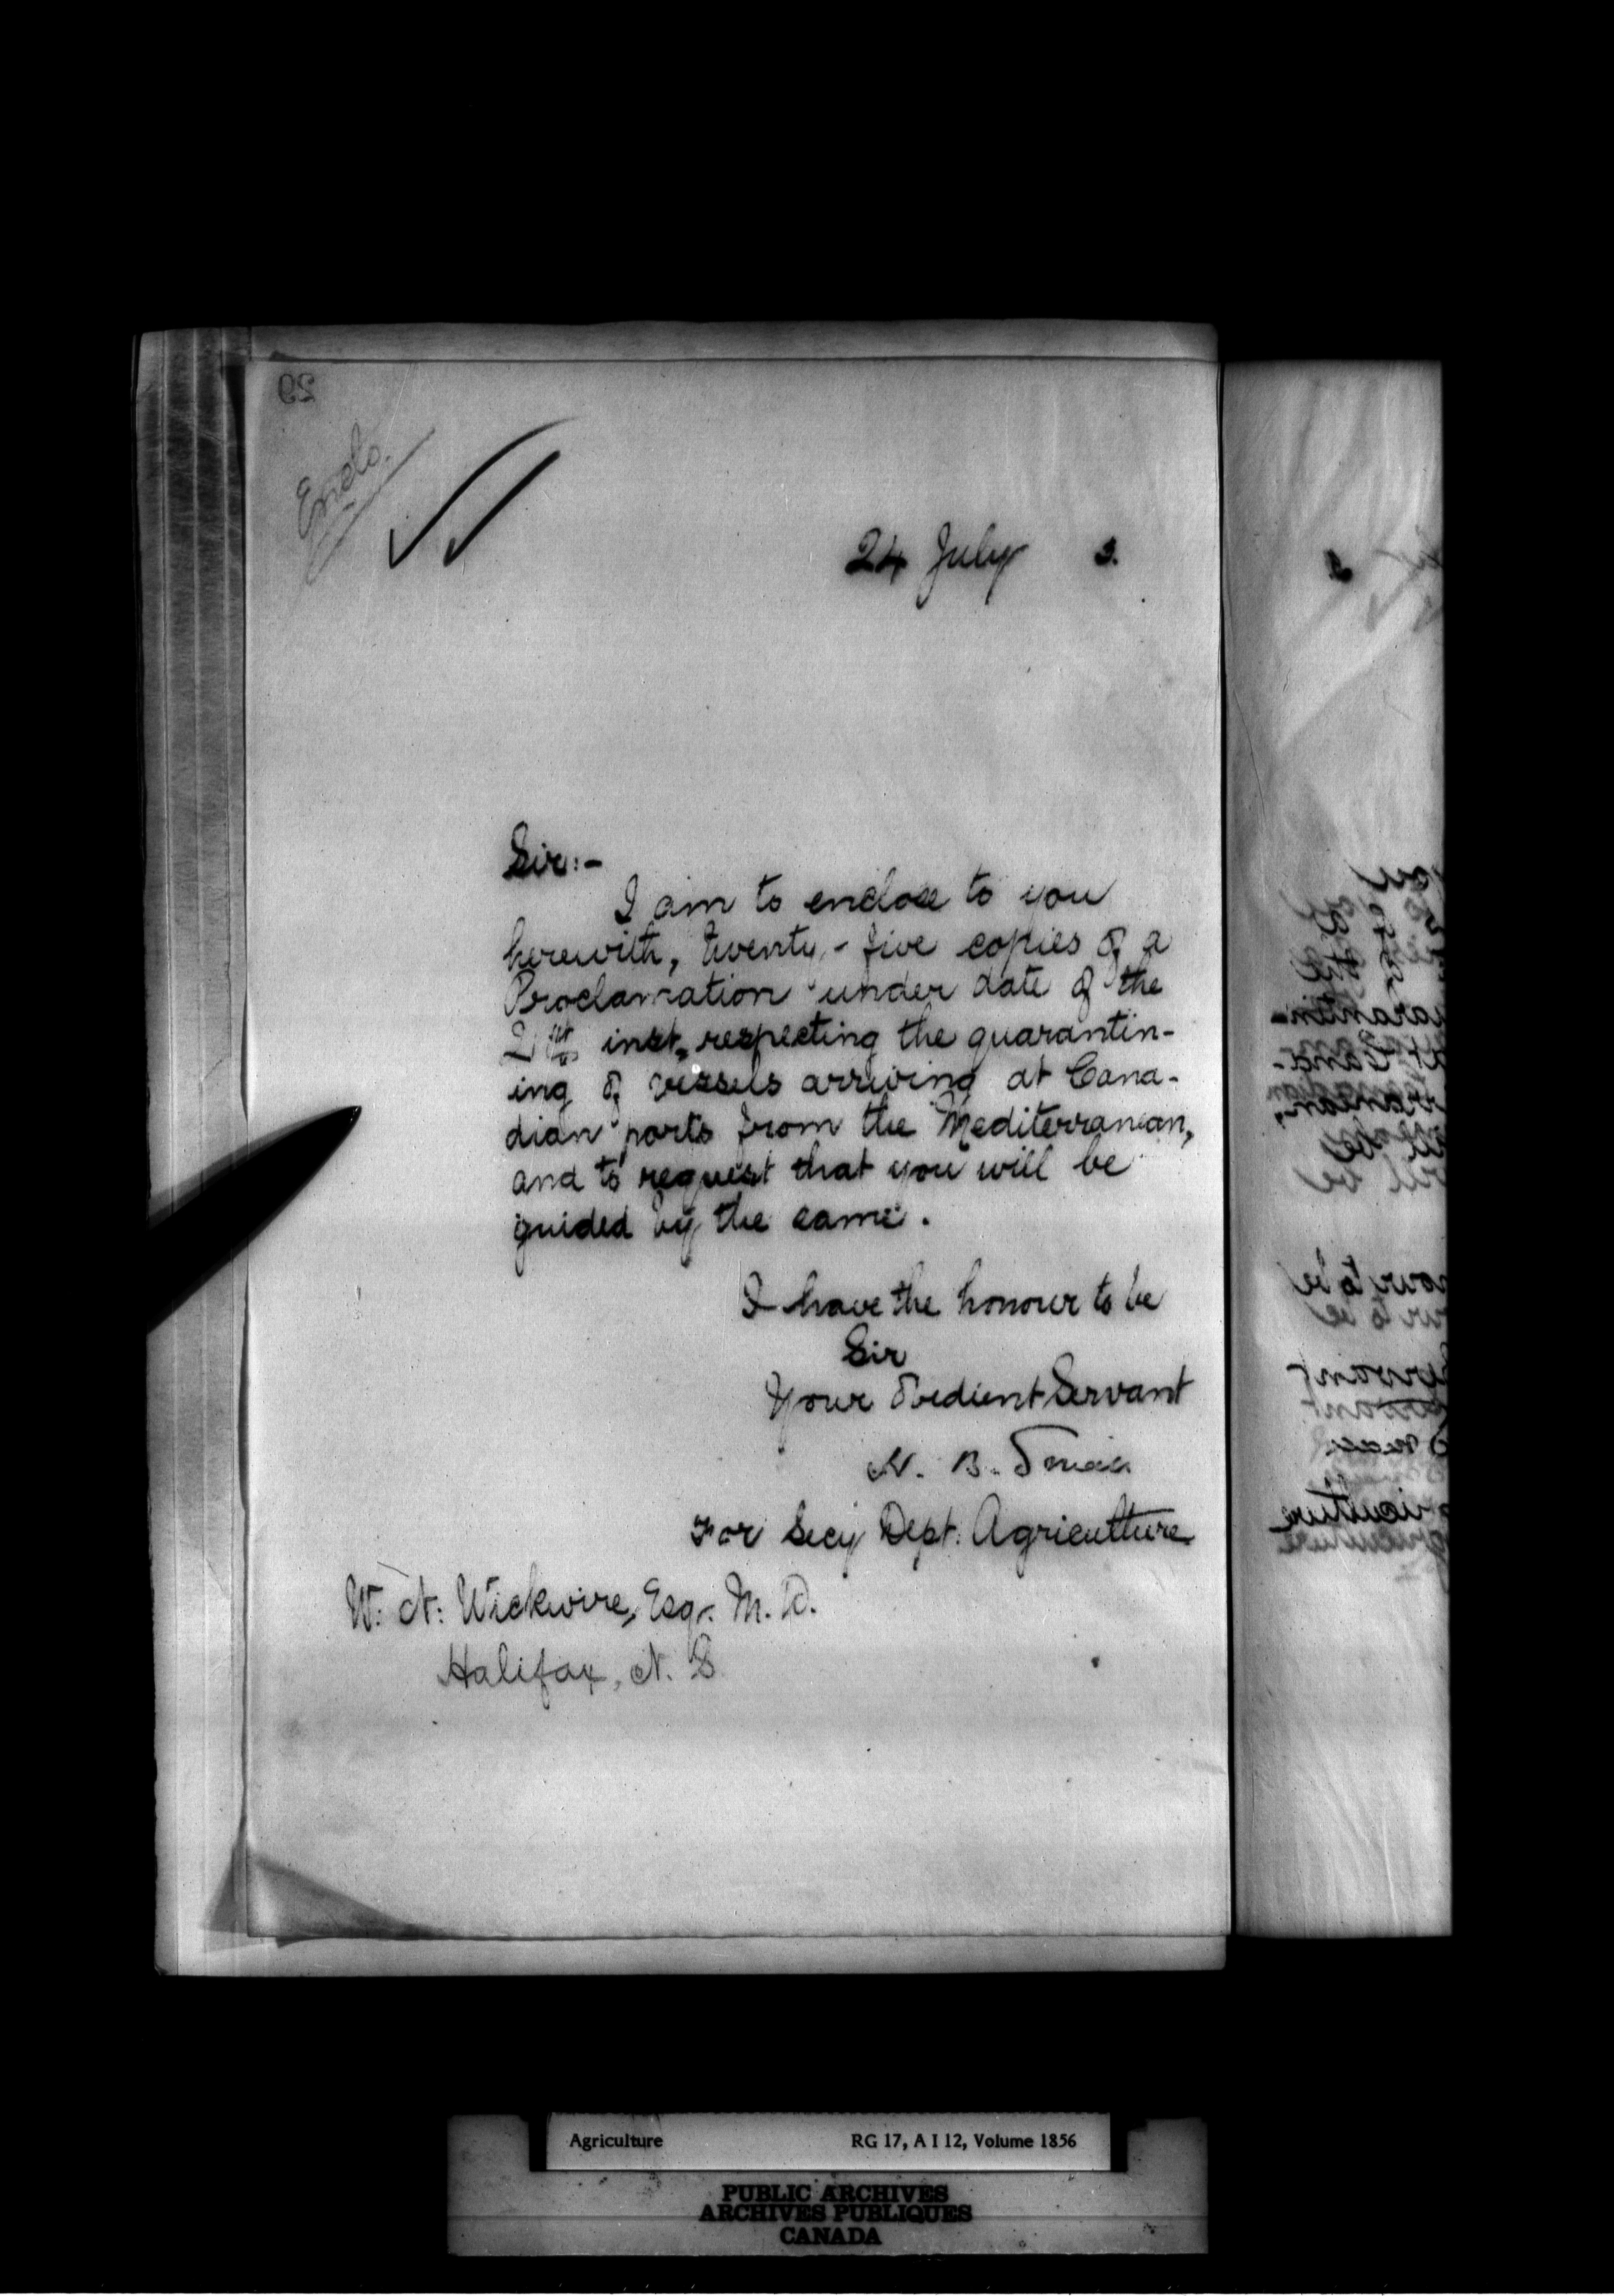 29
Enclo.
24 July 3.
Sir:-
I am to enclose to you
herewith, twenty-five copies of a
Proclamation under date of the
inst. respecting the quarantin-
ing of vessels arriving at Cana-
dian ports from the Mediterranean,
and to request that you will be
guided by the same.
I have the honour to be
Sir
Your Obedient Servant
For Secy Dept: Agriculture
W. N: Wickwire, Esq. M. D.
Halifax, N. S
Agriculture RG 17, A I 12, Volume 1856
PUBLIC ARCHIVES
ARCHIVES PUBLIQUES
CANADA